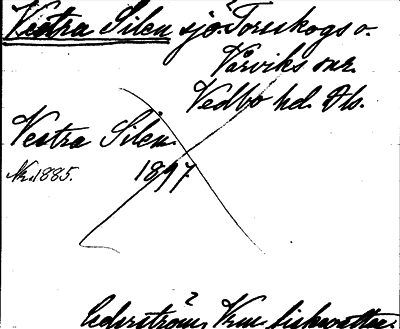 Vestra Silen sjö Torskogs o.
Vårviks snr.
Vedbo hd. Dls.
Vestra Silen.
Nr. 1885. 1897
Cederström, Vrm. fiskvatten